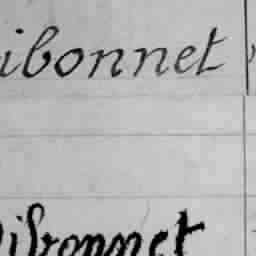 ibonnet
Gibonnet